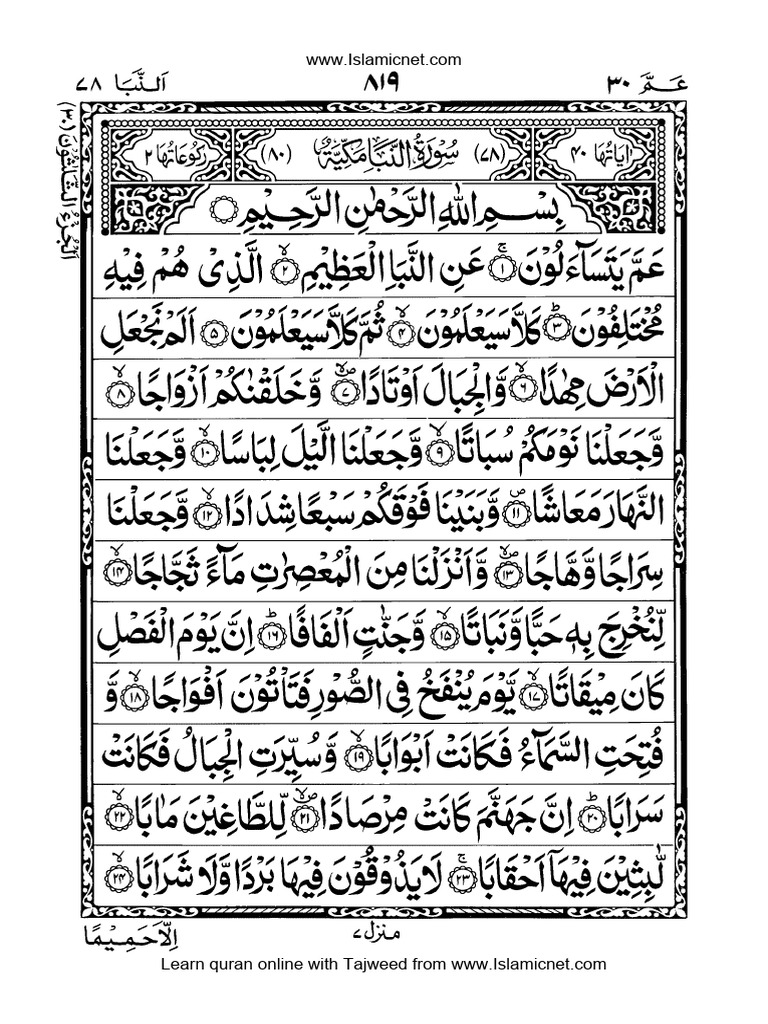 www.Islamicnet.com
عَـمَّ ٣٠ ٨١٩ اَلنَّبَا ٧٨
اَلْجُزْءُ الثَّلٰثُوْنَ (٣٠)
اٰيَاتُهَا ٤٠ (٧٨) سُوْرَةُ النَّبَاِ مَكِّيَّةٌ (٨٠) رُكُوْعَاتُهَا ٢
بِسْمِ اللّٰهِ الرَّحْمٰنِ الرَّحِيْمِ
عَمَّ يَتَسَآءَلُوْنَ ۚ‏﴿١﴾ عَنِ النَّبَاِ الْعَظِيْمِ ۙ‏﴿٢﴾ الَّذِىْ هُمْ فِيْهِ
مُخْتَلِفُوْنَ ؕ‏﴿٣﴾ كَلَّا سَيَعْلَمُوْنَ ۙ‏﴿٤﴾ ثُمَّ كَلَّا سَيَعْلَمُوْنَ ﴿٥﴾ اَلَمْ نَجْعَلِ
الْاَرْضَ مِهٰدًا ۙ‏﴿٦﴾ وَّالْجِبَالَ اَوْتَادًا ۪ۙ‏﴿٧﴾ وَّخَلَقْنٰكُمْ اَزْوَاجًا ۙ‏﴿٨﴾
وَّجَعَلْنَا نَوْمَكُمْ سُبَاتًا ۙ‏﴿٩﴾ وَّجَعَلْنَا الَّيْلَ لِبَاسًا ۙ‏﴿١٠﴾ وَّجَعَلْنَا
النَّهَارَ مَعَاشًا ۪‏﴿١١﴾ وَّبَنَيْنَا فَوْقَكُمْ سَبْعًا شِدَادًا ۙ‏﴿١٢﴾ وَّجَعَلْنَا
سِرَاجًا وَّهَّاجًا ۪ۙ‏﴿١٣﴾ وَّاَنْزَلْنَا مِنَ الْمُعْصِرٰتِ مَآءً ثَجَّاجًا ۙ‏﴿١٤﴾
لِّنُخْرِجَ بِهٖ حَبًّا وَّنَبَاتًا ۙ‏﴿١٥﴾ وَّجَنّٰتٍ اَلْفَافًا ؕ‏﴿١٦﴾ اِنَّ يَوْمَ الْفَصْلِ
كَانَ مِيْقَاتًا ۙ‏﴿١٧﴾ يَّوْمَ يُنْفَخُ فِى الصُّوْرِ فَتَاْتُوْنَ اَفْوَاجًا ۙ‏﴿١٨﴾ وَّ
فُتِحَتِ السَّمَآءُ فَكَانَتْ اَبْوَابًا ۙ‏﴿١٩﴾ وَّسُيِّرَتِ الْجِبَالُ فَكَانَتْ
سَرَابًا ؕ‏﴿٢٠﴾ اِنَّ جَهَنَّمَ كَانَتْ مِرْصَادًا ۪ۙ‏﴿٢١﴾ لِّلطَّاغِيْنَ مَاٰبًا ۙ‏﴿٢٢﴾
لّٰبِثِيْنَ فِيْهَاۤ اَحْقَابًا ۚ‏﴿٢٣﴾ لَا يَذُوْقُوْنَ فِيْهَا بَرْدًا وَّلَا شَرَابًا ۙ‏﴿٢٤﴾
منزل ٧ اِلَّا حَمِيْمًا
Learn quran online with Tajweed from www.Islamicnet.com